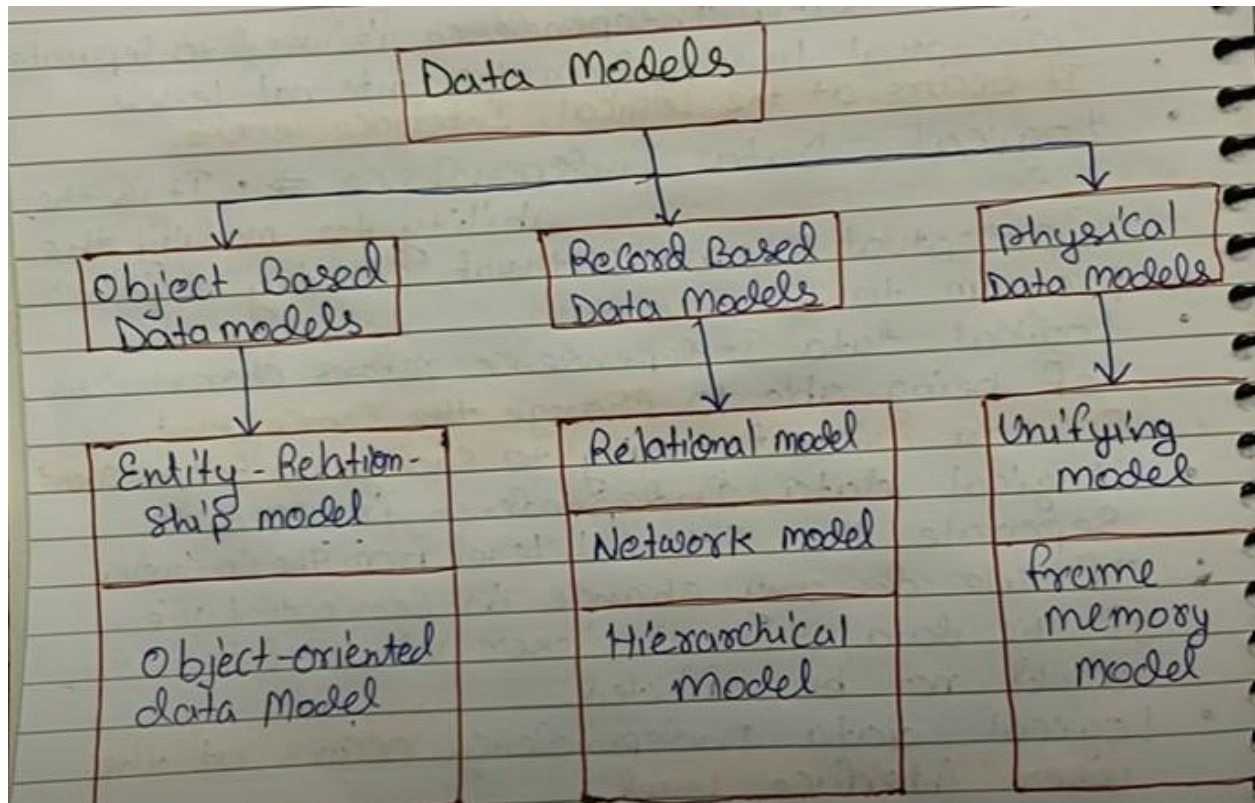 Data Models
Object Based
Data models
Record Based
Data Models
physical
Data models
Entity-Relation-
Ship model
Object-oriented
data Model
Relational model
Network model
Hierarchical
model
Unifying
model
frame
memory
model